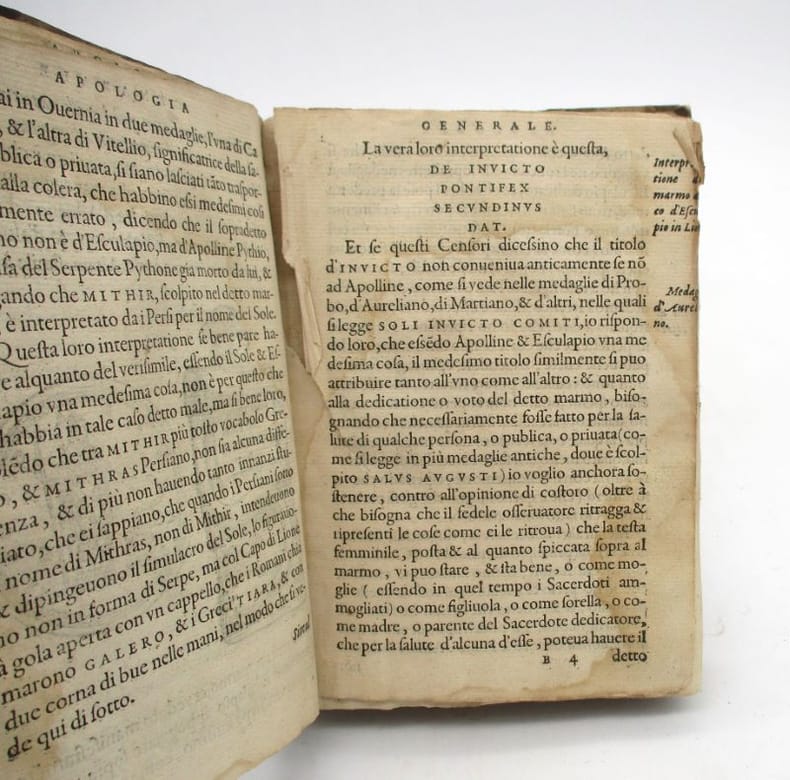 APOLOGIA
ai in Ouernia in due medaglie, l'vna di Ca
, & l'altra di Vitellio, significatrice della sa-
blica o priuata, si siano lasciati tãto traspor-
alla colera, che habbino essi medesimi cosi
mente errato, dicendo che il sopradetto
no non è d'Esculapio, ma d'Apolline Pythio,
sa del Serpente Pythone gia morto da lui, &
gando che MITHIR, scolpito nel detto mar-
, è interpretato da i Persi per il nome del Sole.
Questa loro interpretatione se bene pare ha-
e alquanto del verisimile, essendo il Sole & Es-
lapio vna medesima cosa, non è per questo che
habbia in tale caso detto male, ma si bene loro,
lẽdo che tra MITHIR più tosto vocabolo Gre-
o, & MITHRAS Persiano, non sia alcuna diffe-
enza, & di più non hauendo tanto innanzi stu-
iato, che ei sappiano, che quando i Persiani sotto
nome di Mithras, non di Mithir, intendeuono
& dipingeuono il simulacro del Sole, lo figurauo-
no non in forma di Serpe, ma col Capo di Lione
à gola aperta con vn cappello, che i Romani chia
marono GALERO, & i Greci TIARA, & con
due corna di bue nelle mani, nel modo che si ve-
de qui di sotto.
GENERALE.
La vera loro interpretatione è questa,
DE INVICTO
PONTIFEX
SECVNDINVS
DAT.
Et se questi Censori dicessino che il titolo
d'INVICTO non conueniua anticamente se nõ
ad Apolline, come si vede nelle medaglie di Pro-
bo, d'Aureliano, di Martiano, & d'altri, nelle quali
si legge SOLI INVICTO COMITI, io rispon-
do loro, che essẽdo Apolline & Esculapio vna me
desima cosa, il medesimo titolo similmente si puo
attribuire tanto all'vno come all'altro: & quanto
alla dedicatione o voto del detto marmo, biso-
gnando che necessariamente fosse fatto per la sa-
lute di qualche persona, o publica, o priuata (co-
me si legge in più medaglie antiche, doue è scol-
pito SALVS AVGVSTI) io voglio anchora so-
stenere, contro all'opinione di costoro (oltre à
che bisogna che il fedele osseruatore ritragga &
ripresenti le cose come ei le ritroua) che la testa
femminile, posta & al quanto spiccata sopra al
marmo, vi puo stare, & sta bene, o come mo-
glie (essendo in quel tempo i Sacerdoti am-
mogliati) o come figliuola, o come sorella, o co-
me madre, o parente del Sacerdote dedicatore,
che per la salute d'alcuna d'esse, poteua hauere il
B 4 detto
Interpr
tione d
marmo d
co d'Escu
pio in Lio
Medag
d'Aureli
no.